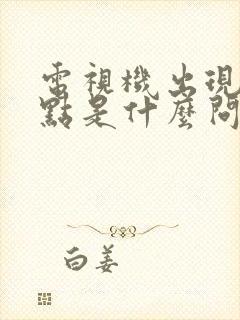 電視機出現
點是什麼問
白姜